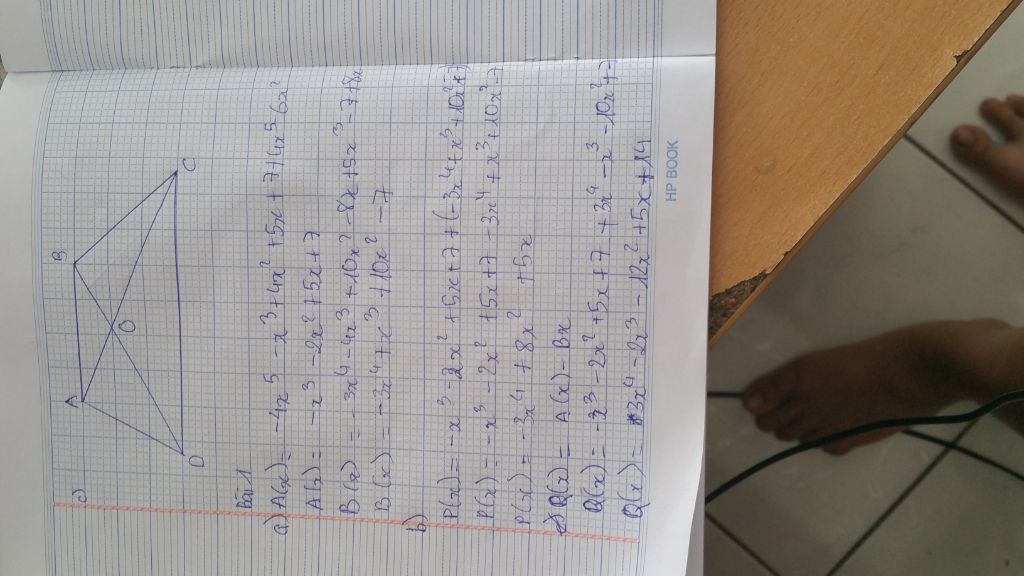 c)
A
B
O
D
C
Bài 1
a) A(x) = -4x⁵ - x³ + 4x² + 5x + 7 + 4x⁵ - 6x²
A(x) = -x³ - 2x² + 5x + 7
B(x) = -3x⁴ - 4x³ + 10x² - 8x + 5x³ - 7 + 8x
B(x) = -3x⁴ + x³ + 10x² - 7
b)
P(x) = -x³ - 2x² + 5x + 7 + (-3x⁴ + x³ + 10x² - 7)
P(x) = -x³ - 2x² + 5x + 7 - 3x⁴ + x³ + 10x² - 7
P(x) = -3x⁴ + 8x² + 5x
Q(x) = A(x) - Bx
Q(x) = -x³ - 2x² + 5x + 7 + 3x⁴ - x³ - 10x² + 7
Q(x) = 3x⁴ - 2x³ - 12x² + 5x + 14
HP BOOK